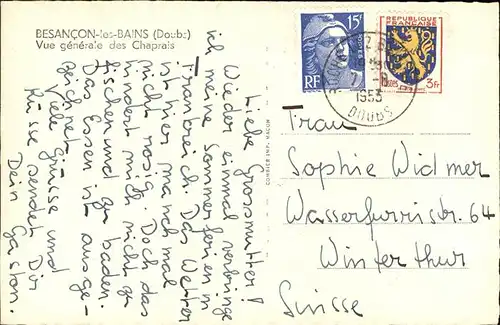 BESANÇON-les-BAINS (Doubs)
Vue générale des Chaprais
Liebe Grossmutter!
Wieder einmal verbringe
ich meine Sommerferien in
Frankreich. Das Wetter
ist hier manchmal
nicht rosig. Doch das
hindert mich nicht zu
fischen und zu baden.
Das Essen ist ausge-
zeichnet.
Viele Grüsse und
Küsse sendet Dir
Dein Gaston.
COMBIER IMP. MACON
15F
RF
REPUBLIQUE
FRANÇAISE
3fr
1953
DOUBS
Frau
Sophie Widmer
Wasserfurristr. 64
Winterthur
Suisse